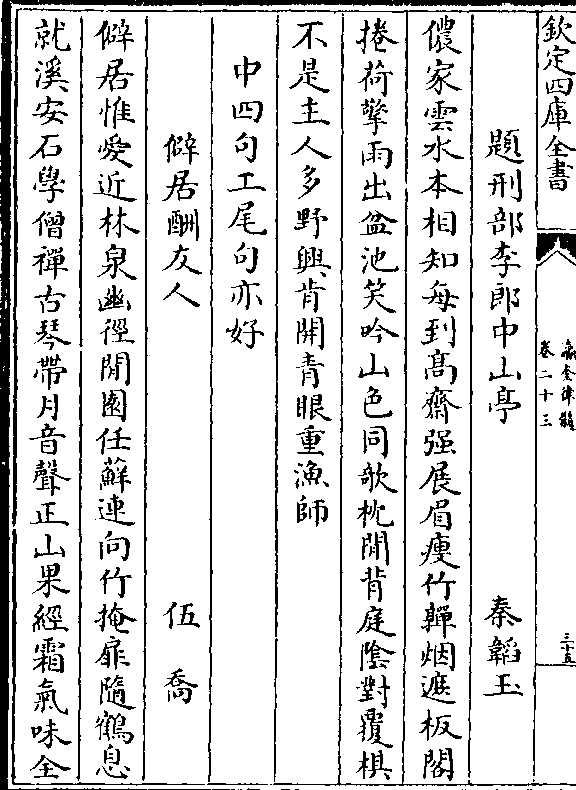 欽定四庫全書
瀛奎律髓
卷二十三
三十五
題刑部李郎中山亭 秦韜玉
儂家雲水本相知每到高齋强展眉瘦竹亸烟遮板閣
捲荷擎雨出盆池笑吟山色同欹枕閒背庭陰對覆棋
不是主人多野興肯開青眼重漁師
中四句工尾句亦好
僻居酬友人 伍喬
僻居惟愛近林泉幽徑閒園任蘚連向竹掩扉隨鶴息
就溪安石學僧禪古琴帶月音聲正山果經霜氣味全